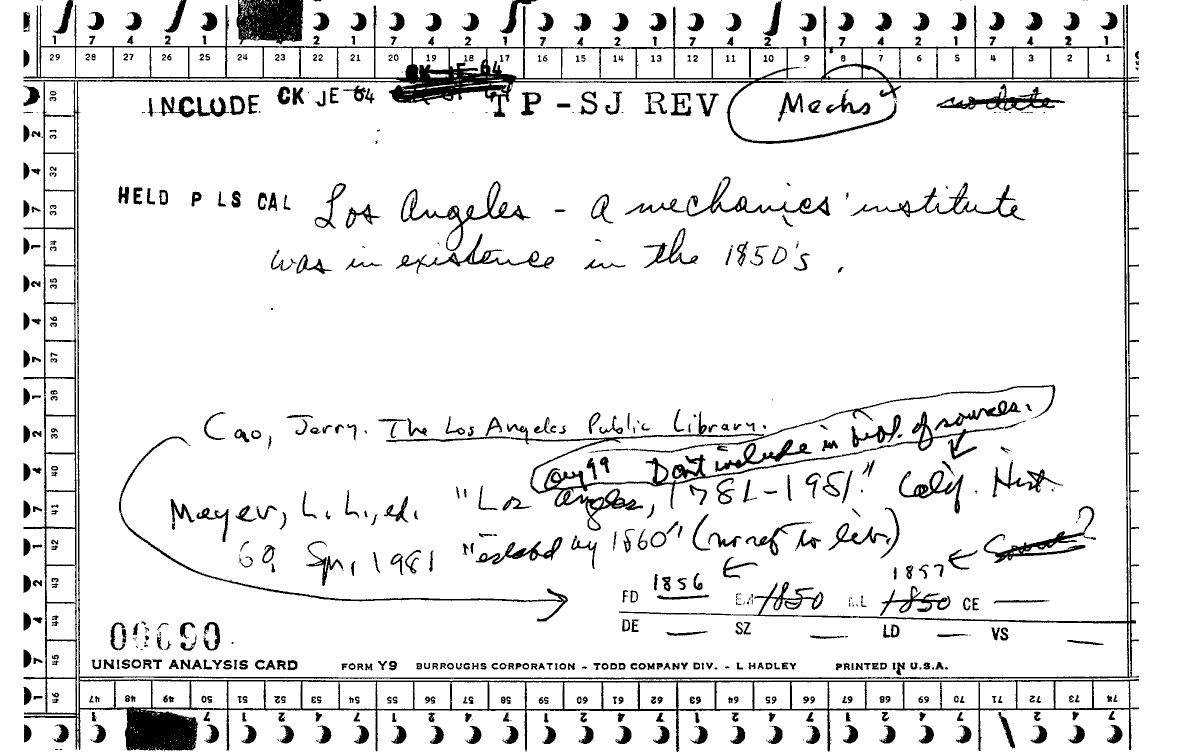 7 4 2 1 7 4 2 1 7 4 2 1 7 4 2 1 7 4 2 1 7 4 2 1
29 28 27 26 25 24 23 22 21 20 19 18 17 16 15 14 13 12 11 10 9 8 7 6 5 4 3 2 1
INCLUDE CK JE 64 TP-SJ REV Mechs no date
HELD P LS CAL Los Angeles - a mechanics' institute
was in existence in the 1850's.
Cao, Jerry. The Los Angeles Public Library.
Aug 99 Don't include in bibl. of sources.
Mayer, L. L., ed. "Los Angeles, 1781-1981." Calif. Hist.
60 Spr, 1981 "estabd by 1860" (no ref to lib.)
FD 1856 1850 1857 1850 CE —
DE — SZ — LD — VS —
00690
UNISORT ANALYSIS CARD FORM Y9 BURROUGHS CORPORATION - TODD COMPANY DIV. - L HADLEY PRINTED IN U.S.A.
30 31 32 33 34 35 36 37 38 39 40 41 42 43 44 45 46
47 48 49 50 51 52 53 54 55 56 57 58 59 60 61 62 63 64 65 66 67 68 69 70 71 72 73 74